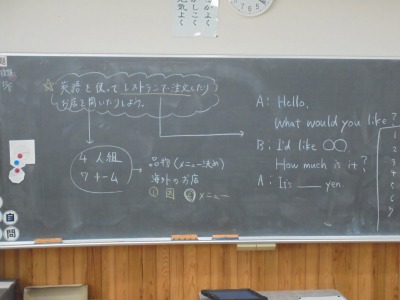 よく
かしこく
元気よく
英語を使ってレストランで注文したり
お店を開いたりしよう。
4人組
7チーム
品物(メニュー決め)
海外のお店
メニュー
A: Hello.
What would you like?
B: I'd like ○○.
How much is it?
A: It's ___ yen.
1
2
3
4
5
6
7
自
問